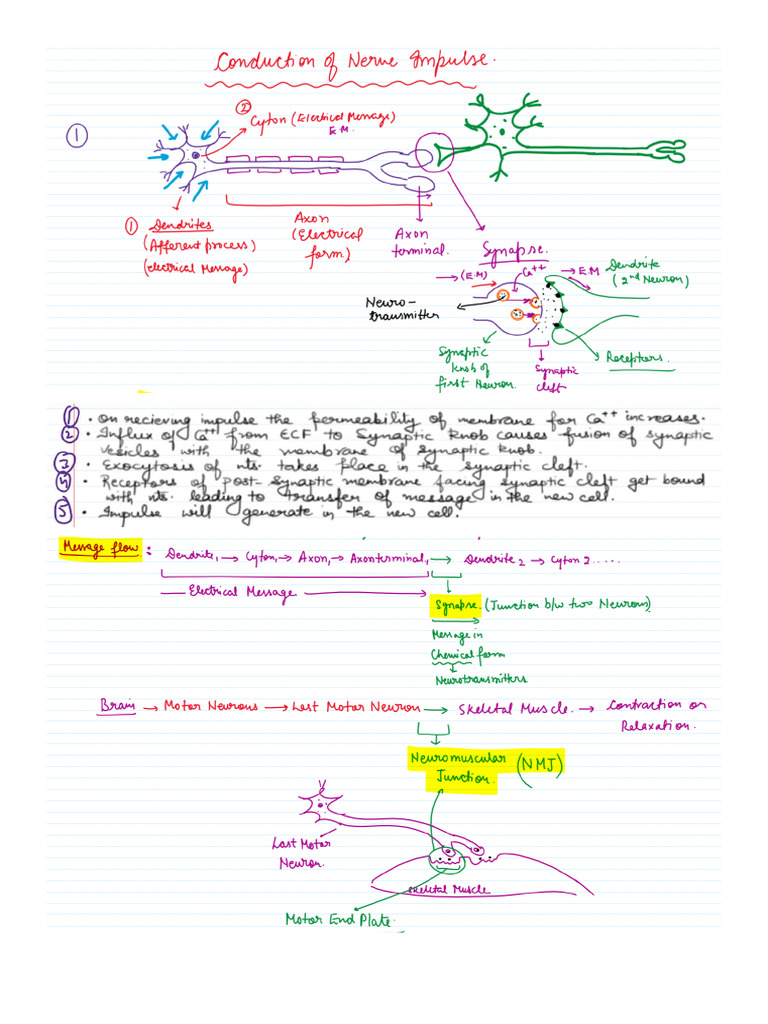 Conduction of Nerve Impulse.
②
Cyton (Electrical Message)
E.M.
①
① Dendrites
(Afferent process)
(electrical Message)
Axon
(Electrical
form)
Axon
terminal.
Synapse.
→(E.M)
Ca++
→E.M
Dendrite
(2nd Neuron)
Neuro-
transmitter
Synaptic
knob of
first Neuron.
Synaptic
cleft
Receptors.
① • On recieving impulse the permeability of membrane for Ca++ increases.
② • Influx of Ca++ from ECF to Synaptic knob causes fusion of synaptic
vesicles with the membrane of synaptic knob.
③ • Exocytosis of nts. takes place in the synaptic cleft.
⑤ • Receptors of post-synaptic membrane facing synaptic cleft get bound
with nts. leading to transfer of message in the new cell.
⑤ • Impulse will generate in the new cell.
Message flow : Dendrite1 → Cyton1 → Axon1 → Axonterminal1 → Dendrite2 → Cyton 2 .....
Electrical Message
Synapse. (Junction b/w two Neurons)
Message in
Chemical form
Neurotransmitters
Brain → Motor Neurons → Last Motor Neuron → Skeletal Muscle. → Contraction or
Relaxation.
Neuromuscular (NMJ)
Junction.
Last Motor
Neuron.
Skeletal Muscle
Motor End Plate.